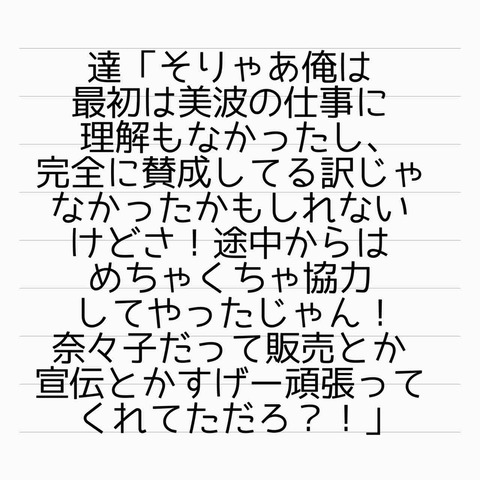 達「そりゃあ俺は
最初は美波の仕事に
理解もなかったし、
完全に賛成してる訳じゃ
なかったかもしれない
けどさ！途中からは
めちゃくちゃ協力
してやったじゃん！
奈々子だって販売とか
宣伝とかすげー頑張って
くれてただろ？！」